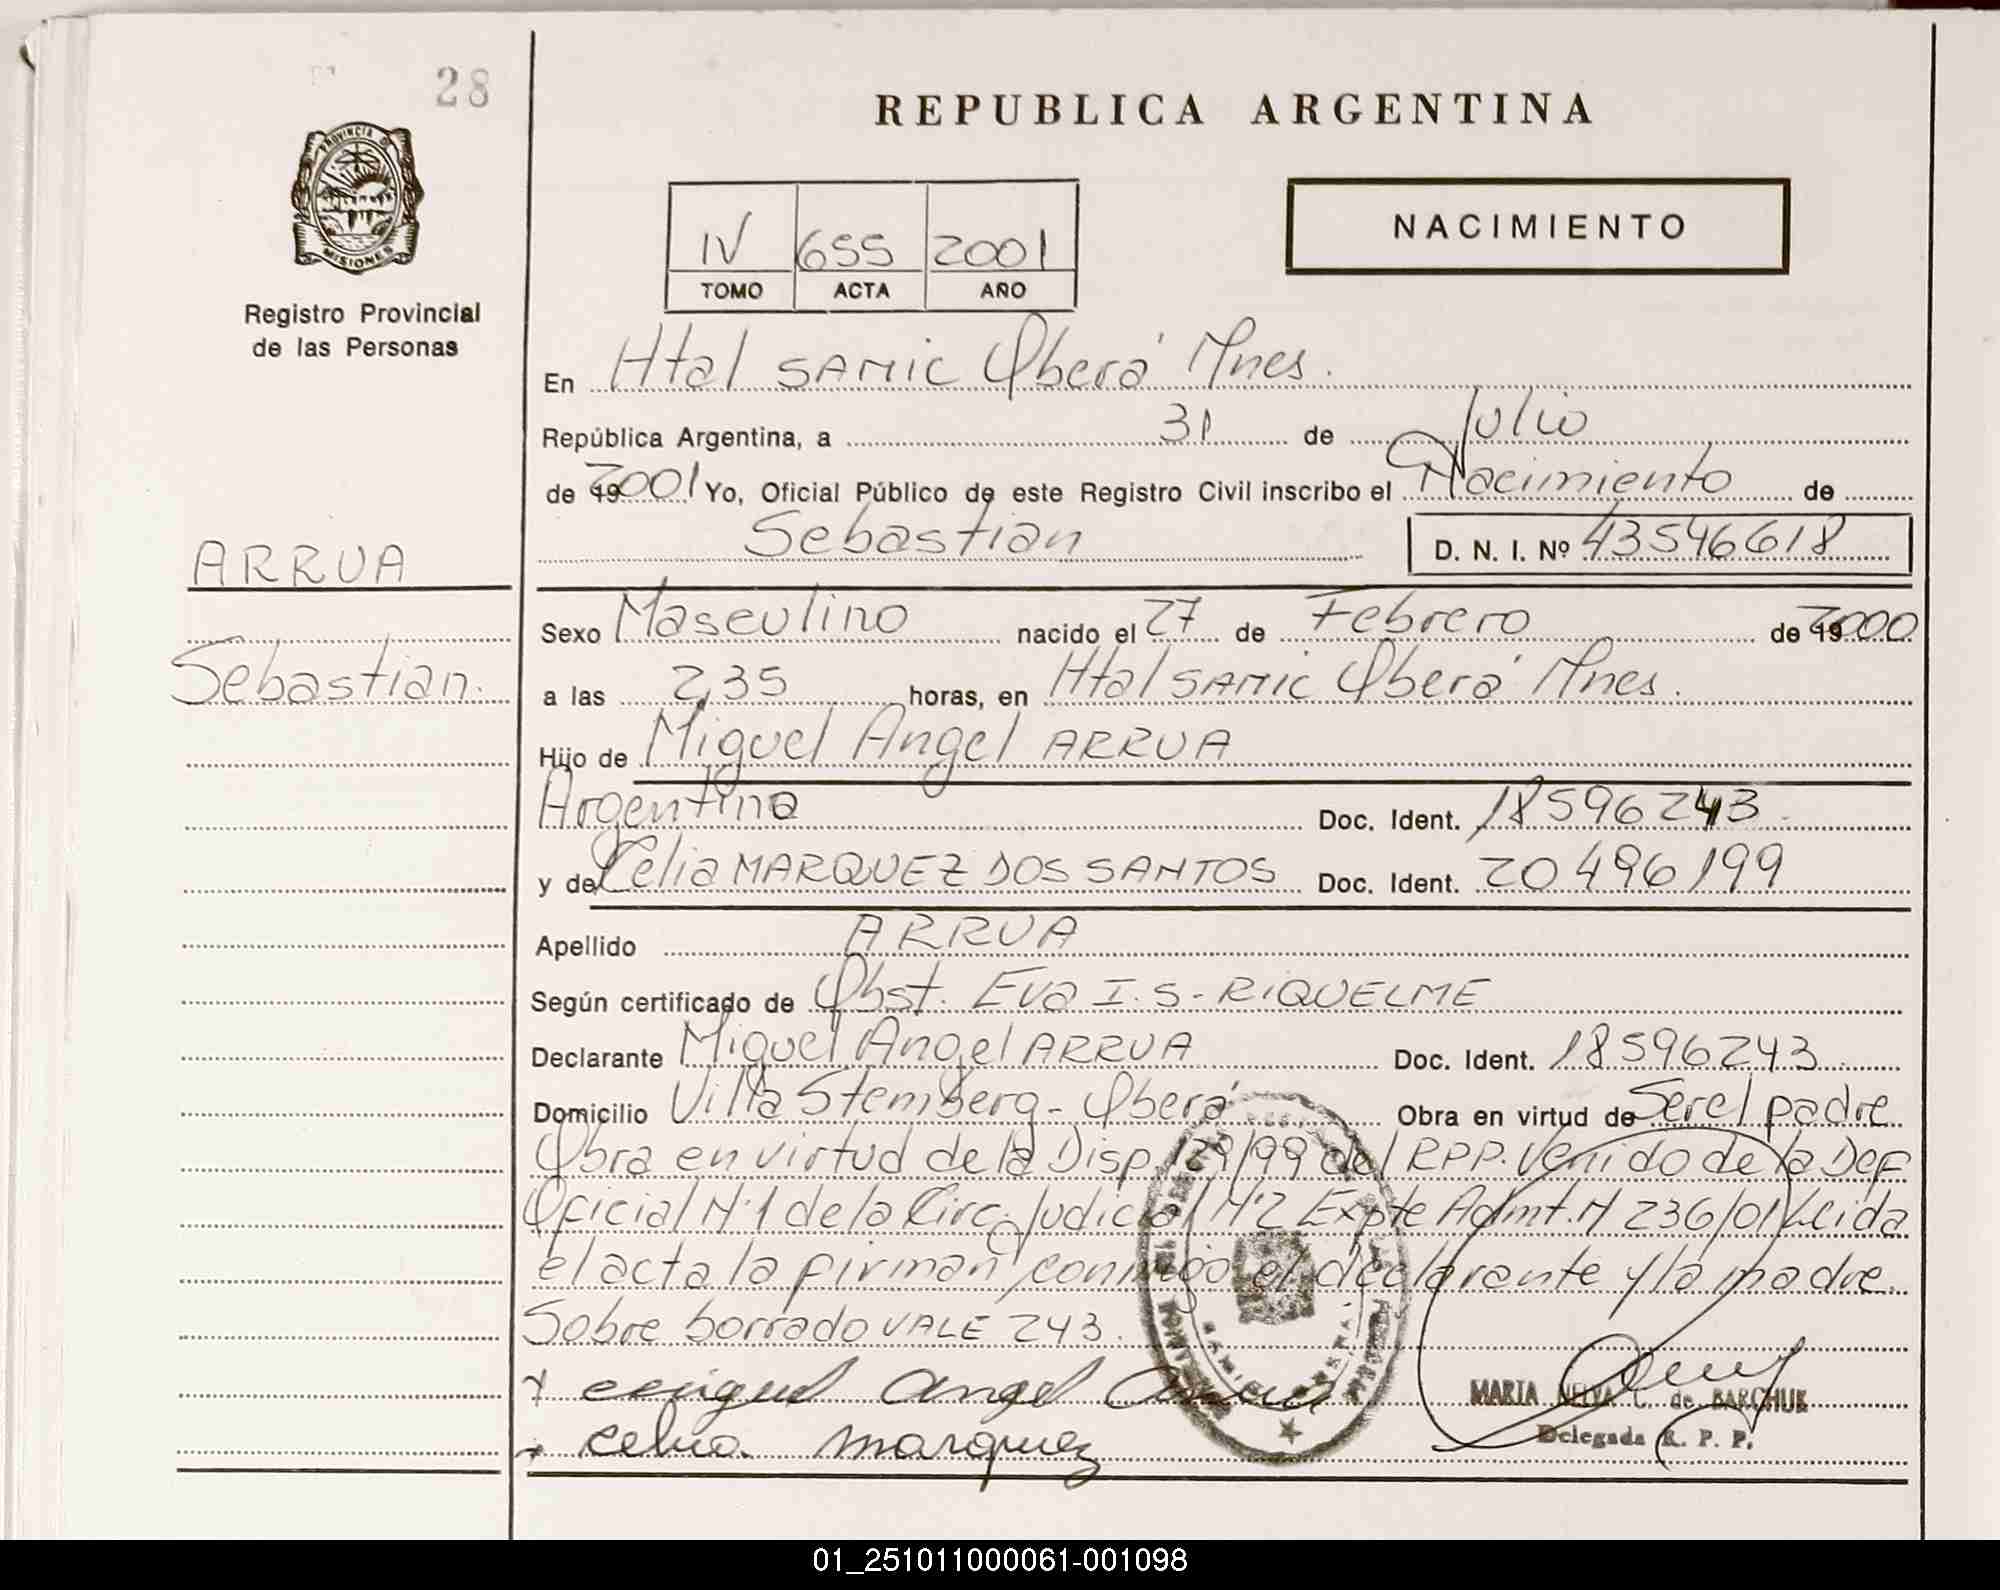 28
REPUBLICA ARGENTINA
PROVINCIA DE
MISIONES
Registro Provincial
de las Personas
IV 655 2001
TOMO ACTA AÑO
NACIMIENTO
En Htal SAMIC Oberá Mnes.
República Argentina, a 31 de Julio
de 192001 Yo, Oficial Público de este Registro Civil inscribo el Nacimiento de
Sebastian D. N. I. Nº 43546618
ARRUA
Sebastian.
Sexo Masculino nacido el 27 de Febrero de 192000
a las 2,35 horas, en Htal SAMIC Oberá Mnes.
Hijo de Miguel Angel ARRUA
Argentina Doc. Ident. 18596243
y de Celia MARQUEZ DOS SANTOS Doc. Ident. 20496199
Apellido ARRUA
Según certificado de Obst. Eva I. S- RIQUELME
Declarante Miguel Angel ARRUA Doc. Ident. 18596243
Domicilio Villa Stemberg - Oberá Obra en virtud de Ser el padre
Obra en virtud de la Disp. 129/99 del RPP. Venido de la Def
Oficial Nº1 de la Circ. Judicial Nº2 Expte Admt. N 236/01 Leida
el acta la firman conmigo el declarante y la madre.
Sobre borrado VALE 243.
x Miguel Angel Arrua
x Celia Marquez
MARIA NELVA C. de BARCHUK
Delegada R. P. P.
01_251011000061-001098